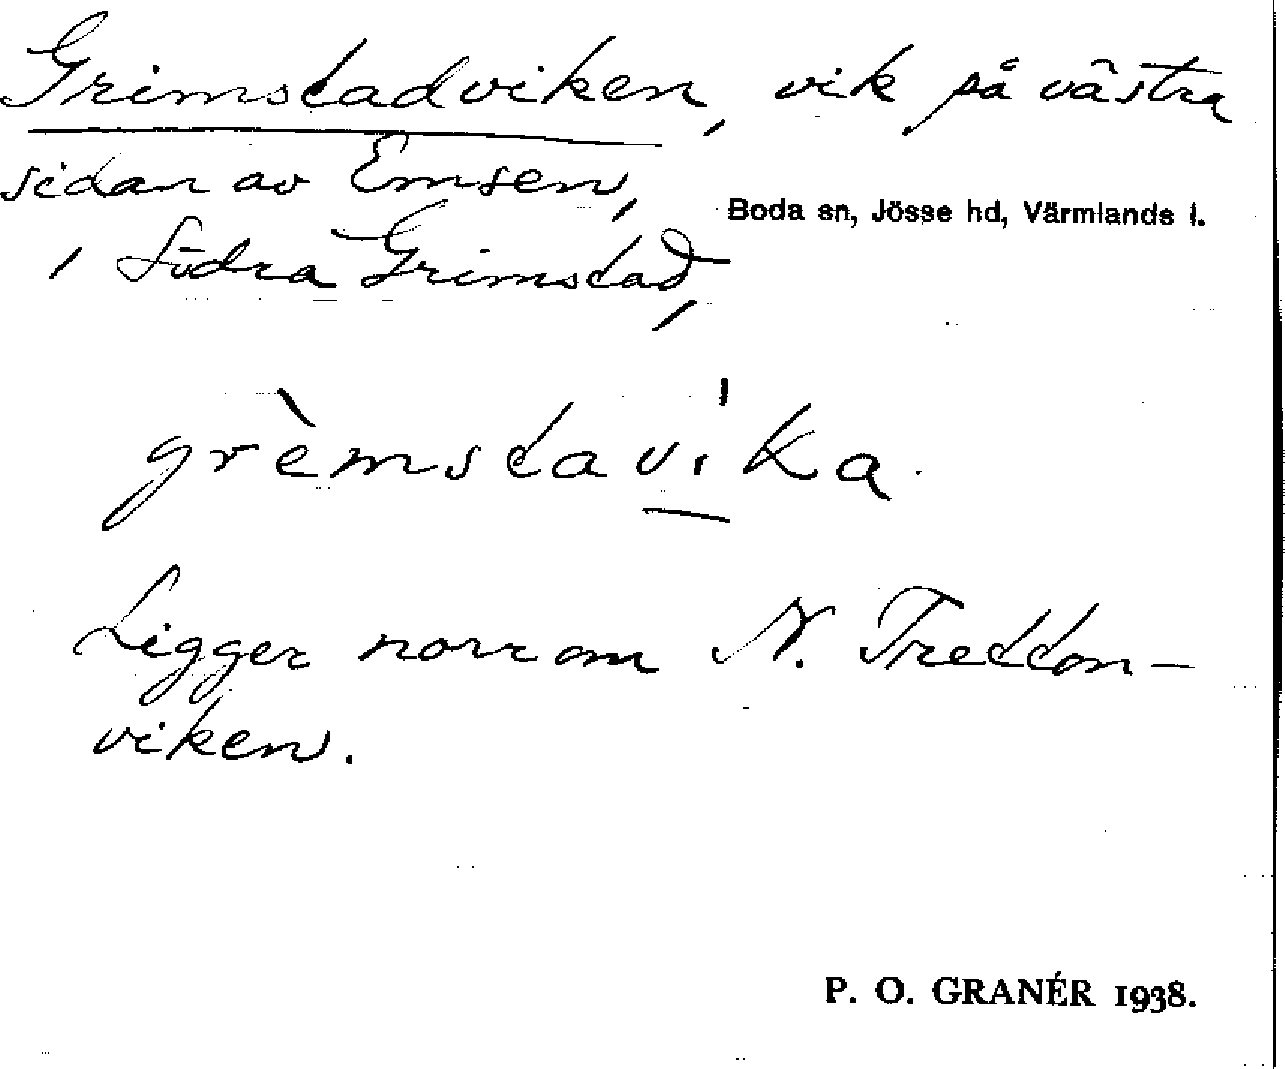 Grimstadviken, vik på västra
sidan av Emsen,
Boda sn, Jösse hd, Värmlands l.
i Södra Grimstad,
grèmstavi'ka.
Ligger norrom N. Tretton-
viken.
P. O. GRANÉR 1938.